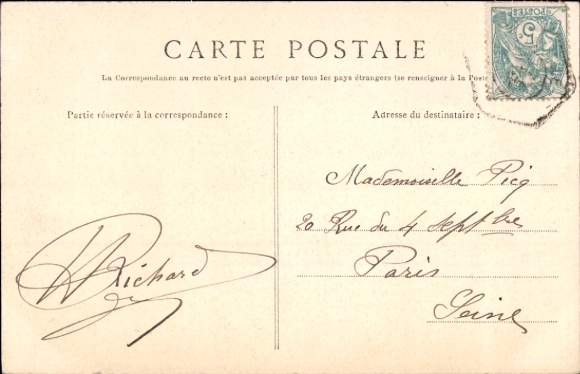 CARTE POSTALE
POSTES
5c
La Correspondance au recto n'est pas acceptée par tous les pays étrangers (se renseigner à la Poste
Partie réservée à la correspondance :
Adresse du destinataire :
Mademoiselle Picq
20 Rue du 4 Septbre
Paris
Seine
Richard